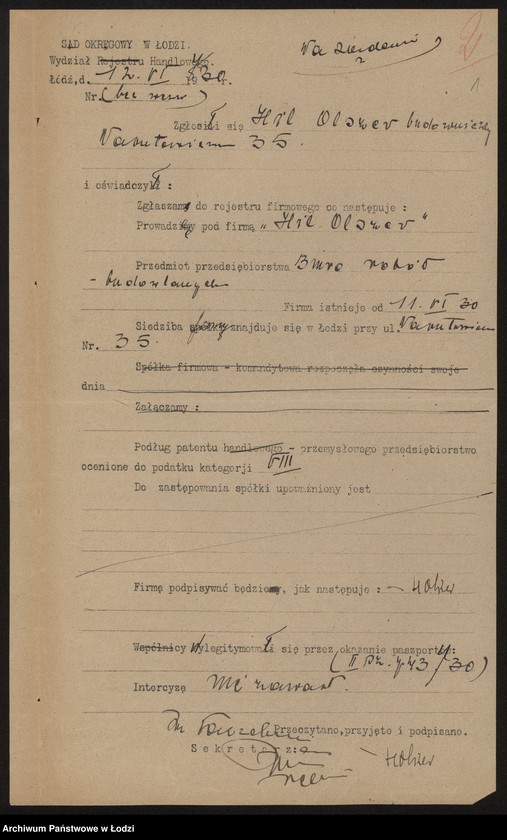 SĄD OKRĘGOWY W ŁODZI.
Wydział Rejestru Handlowego.
Łódź, d. 12. VI 1930 r.
2
1
Nr. (bez wezw)
Zgłosił się Hil Olszer budowniczy
Narutowicza 35.
i oświadczył :
Zgłaszam do rejestru firmowego co następuje :
Prowadzę pod firmą „Hil Olszer"
Przedmiot przedsiębiorstwa Biuro robót
- budowlanych
Firma istnieje od 11. VI 30
Siedziba firmy znajduje się w Łodzi przy ul. Narutowicza
Nr. 35.
Spółka firmowa - komandytowa rozpoczęła czynności swoje
dnia
Załączamy :
Podług patentu handlowego - przemysłowego przedsiębiorstwo
ocenione do podatku kategorji VIII
Do zastępowania spółki upoważniony jest
Firmę podpisywać będzie, jak następuje : -
Wylegitymował się przez okazanie paszportu:
Intercyzę nie zawarł.
Przeczytano, przyjęto i podpisano.
Sekretarz:
Archiwum Państwowe w Łodzi